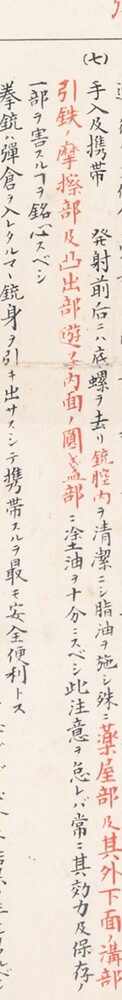 (七)
手入及携帯　発射前后ニハ底螺ヲ去リ銃腔内ヲ清潔ニシ脂油ヲ施シ殊ニ薬屋部及其外下面ノ溝部
引鉄ノ摩擦部及凸出部遊子内面ノ圓盖部ニ塗油ヲ十分ニスベシ此注意ヲ怠レバ常ニ其効力及保存ノ
一部ヲ害スルヿヲ銘心スベシ
拳銃ハ弾倉ヲ入レタルマヽ銃身ヲ引キ出サスシテ携帯スルヲ最モ安全便利トス